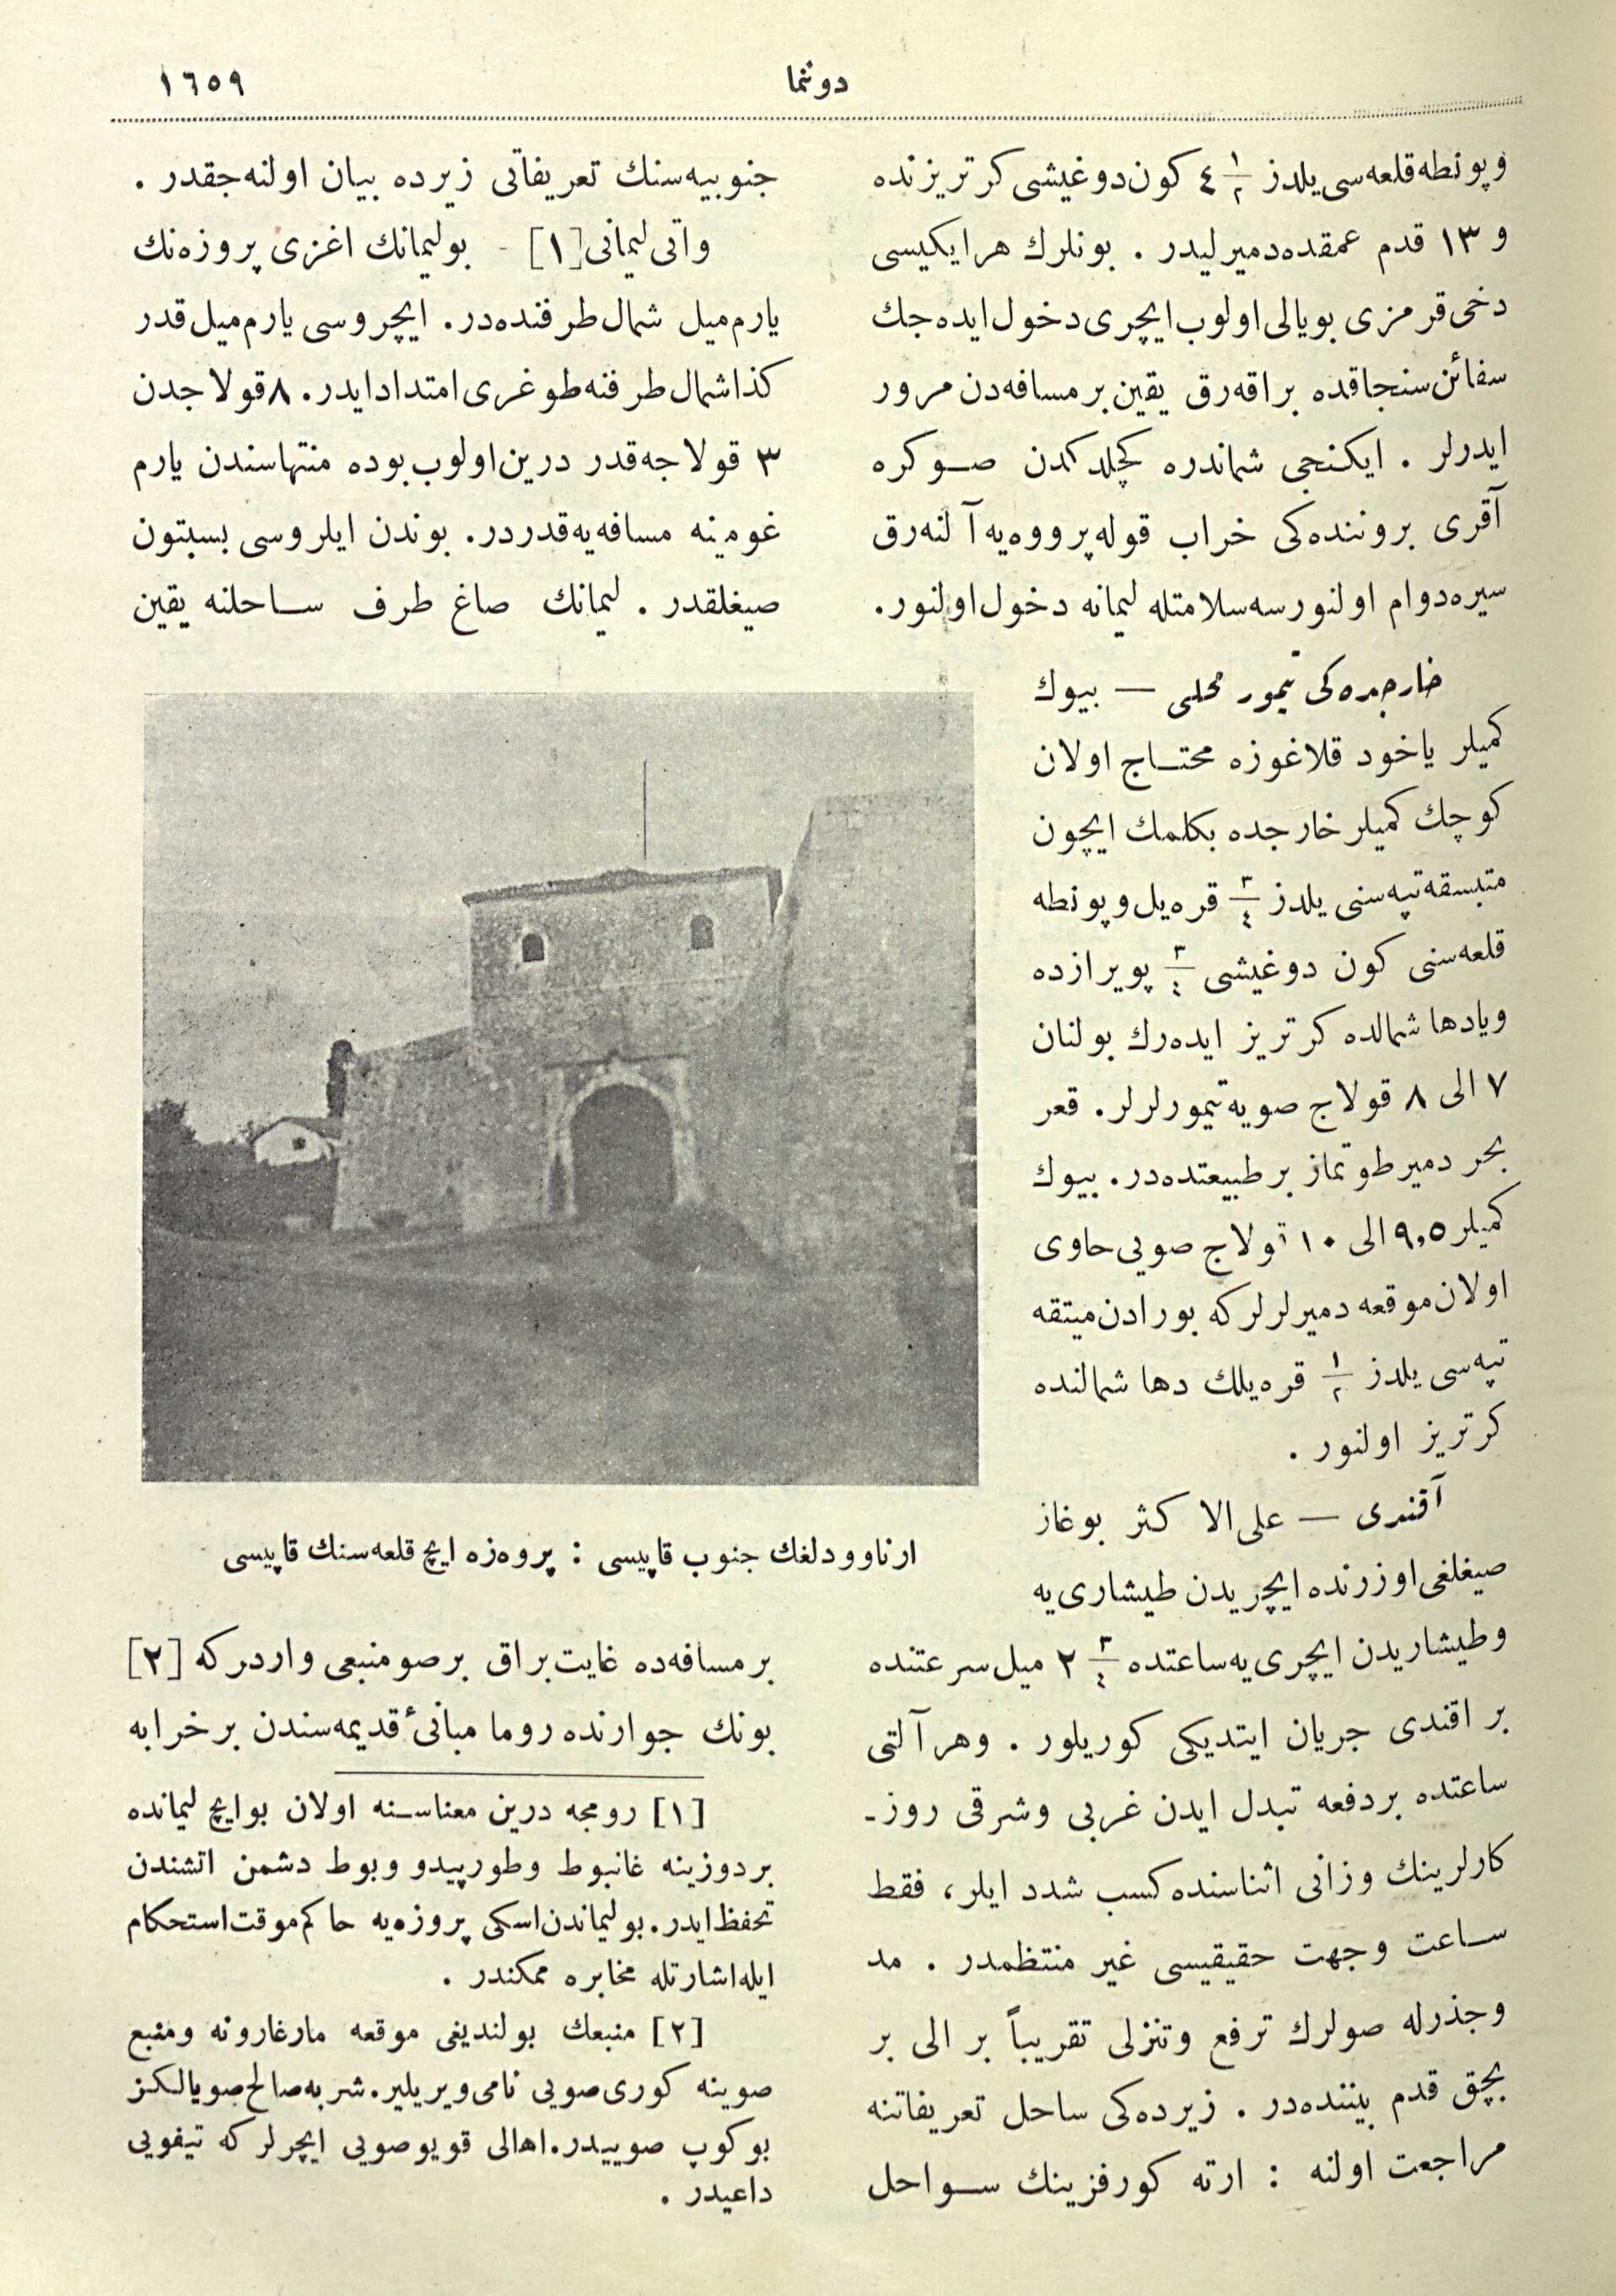 دوننما
١٦٥٩
وپونطه قلعه‌سی یلدز ١/٢ ٤ كون دوغیشی كرتریزنده
و ١٣ قدم عمقده دمیرلیدر . بونلرك هر ایكیسی
دخی قرمزی بویالی اولوب ایچری دخول ایده‌جك
سفائن سنجاقده براقه‌رق یقین بر مسافه‌دن مرور
ایدرلر . ایكنجی شماندره كچلدكدن صوكره
آقری بروننده‌كی خراب قوله پرووه‌یه آلنه‌رق
سیره دوام اولنورسه سلامتله لیمانه دخول اولنور.
خارجده‌كی تیمور محلی — بیوك
كمیلر یاخود قلاغوزه محتاج اولان
كوچك كمیلر خارجده بكلمك ایچون
متبسقه تپه‌سنی یلدز ٣/٤ قره‌یل و پونطه
قلعه‌سنی كون دوغیشی ٣/٤ پویرازده
ویادها شمالده كرتریز ایده‌رك بولنان
٧ الی ٨ قولاج صویه تیمورلرلر. قعر
بحر دمیر طوتماز بر طبیعتده‌در. بیوك
كمیلر ٩,٥ الی ١٠ قولاج صویی حاوی
اولان موقعه دمیرلرلر كه بورادن میتقه
تپه‌سی یلدز ١/٢ قره‌یلك دها شمالنده
كرتریز اولنور .
آقندی — علی الاكثر بوغاز
صیغلغی اوزرنده ایچریدن طیشاری‌یه
وطیشاریدن ایچری‌یه ساعتده ٣/٤ ٢ میل سرعتنده
بر اقندی جریان ایتدیكی كوریلور . وهر آلتی
ساعتده بر دفعه تبدل ایدن غربی وشرقی روز-
كارلرینك وزانی اثناسنده كسب شدد ایلر، فقط
ساعت وجهت حقیقیسی غیر منتظمدر . مد
وجذرله صولرك ترفع وتنزلی تقریباً بر الی بر
بچق قدم بیننده‌در . زیرده‌كی ساحل تعریفاتنه
مراجعت اولنه : ارته كورفزینك سواحل
جنوبیه‌سنك تعریفاتی زیرده بیان اولنه‌جقدر .
واتی لیمانی [١] - بو لیمانك اغزی پروزه‌نك
یارم میل شمال طرفنده‌در. ایچروسی یارم میل قدر
كذا شمال طرفنه طوغری امتداد ایدر. ٨ قولاجدن
٣ قولاجه قدر درین اولوب بوده منتهاسندن یارم
غومینه مسافه‌یه قدردر. بوندن ایلروسی بسبتون
صیغلقدر . لیمانك صاغ طرف ساحلنه یقین
ارناوودلغك جنوب قاپیسی : پروه‌زه ایچ قلعه‌سنك قاپیسی
بر مسافه‌ده غایت براق بر صو منبعی واردر كه [٢]
بونك جوارنده روما مبانیٔ قدیمه‌سندن بر خرابه
[١] رومجه درین معناسنه اولان بو ایچ لیمانده
بر دوزینه غانبوط وطورپیدو وبوط دشمن اتشندن
تحفظ ایدر. بو لیماندن اسكی پروزه‌یه حاكم موقت استحكام
ایله اشارتله مخابره ممكندر .
[٢] منبعك بولندیغی موقعه مارغارونه ومنبع
صوینه كوری صویی نامی ویریلیر. شربه صالح صو یالكز
بو كوپ صوییدر. اهالی قویو صویی ایچرلر كه تیفویی
داعیدر .